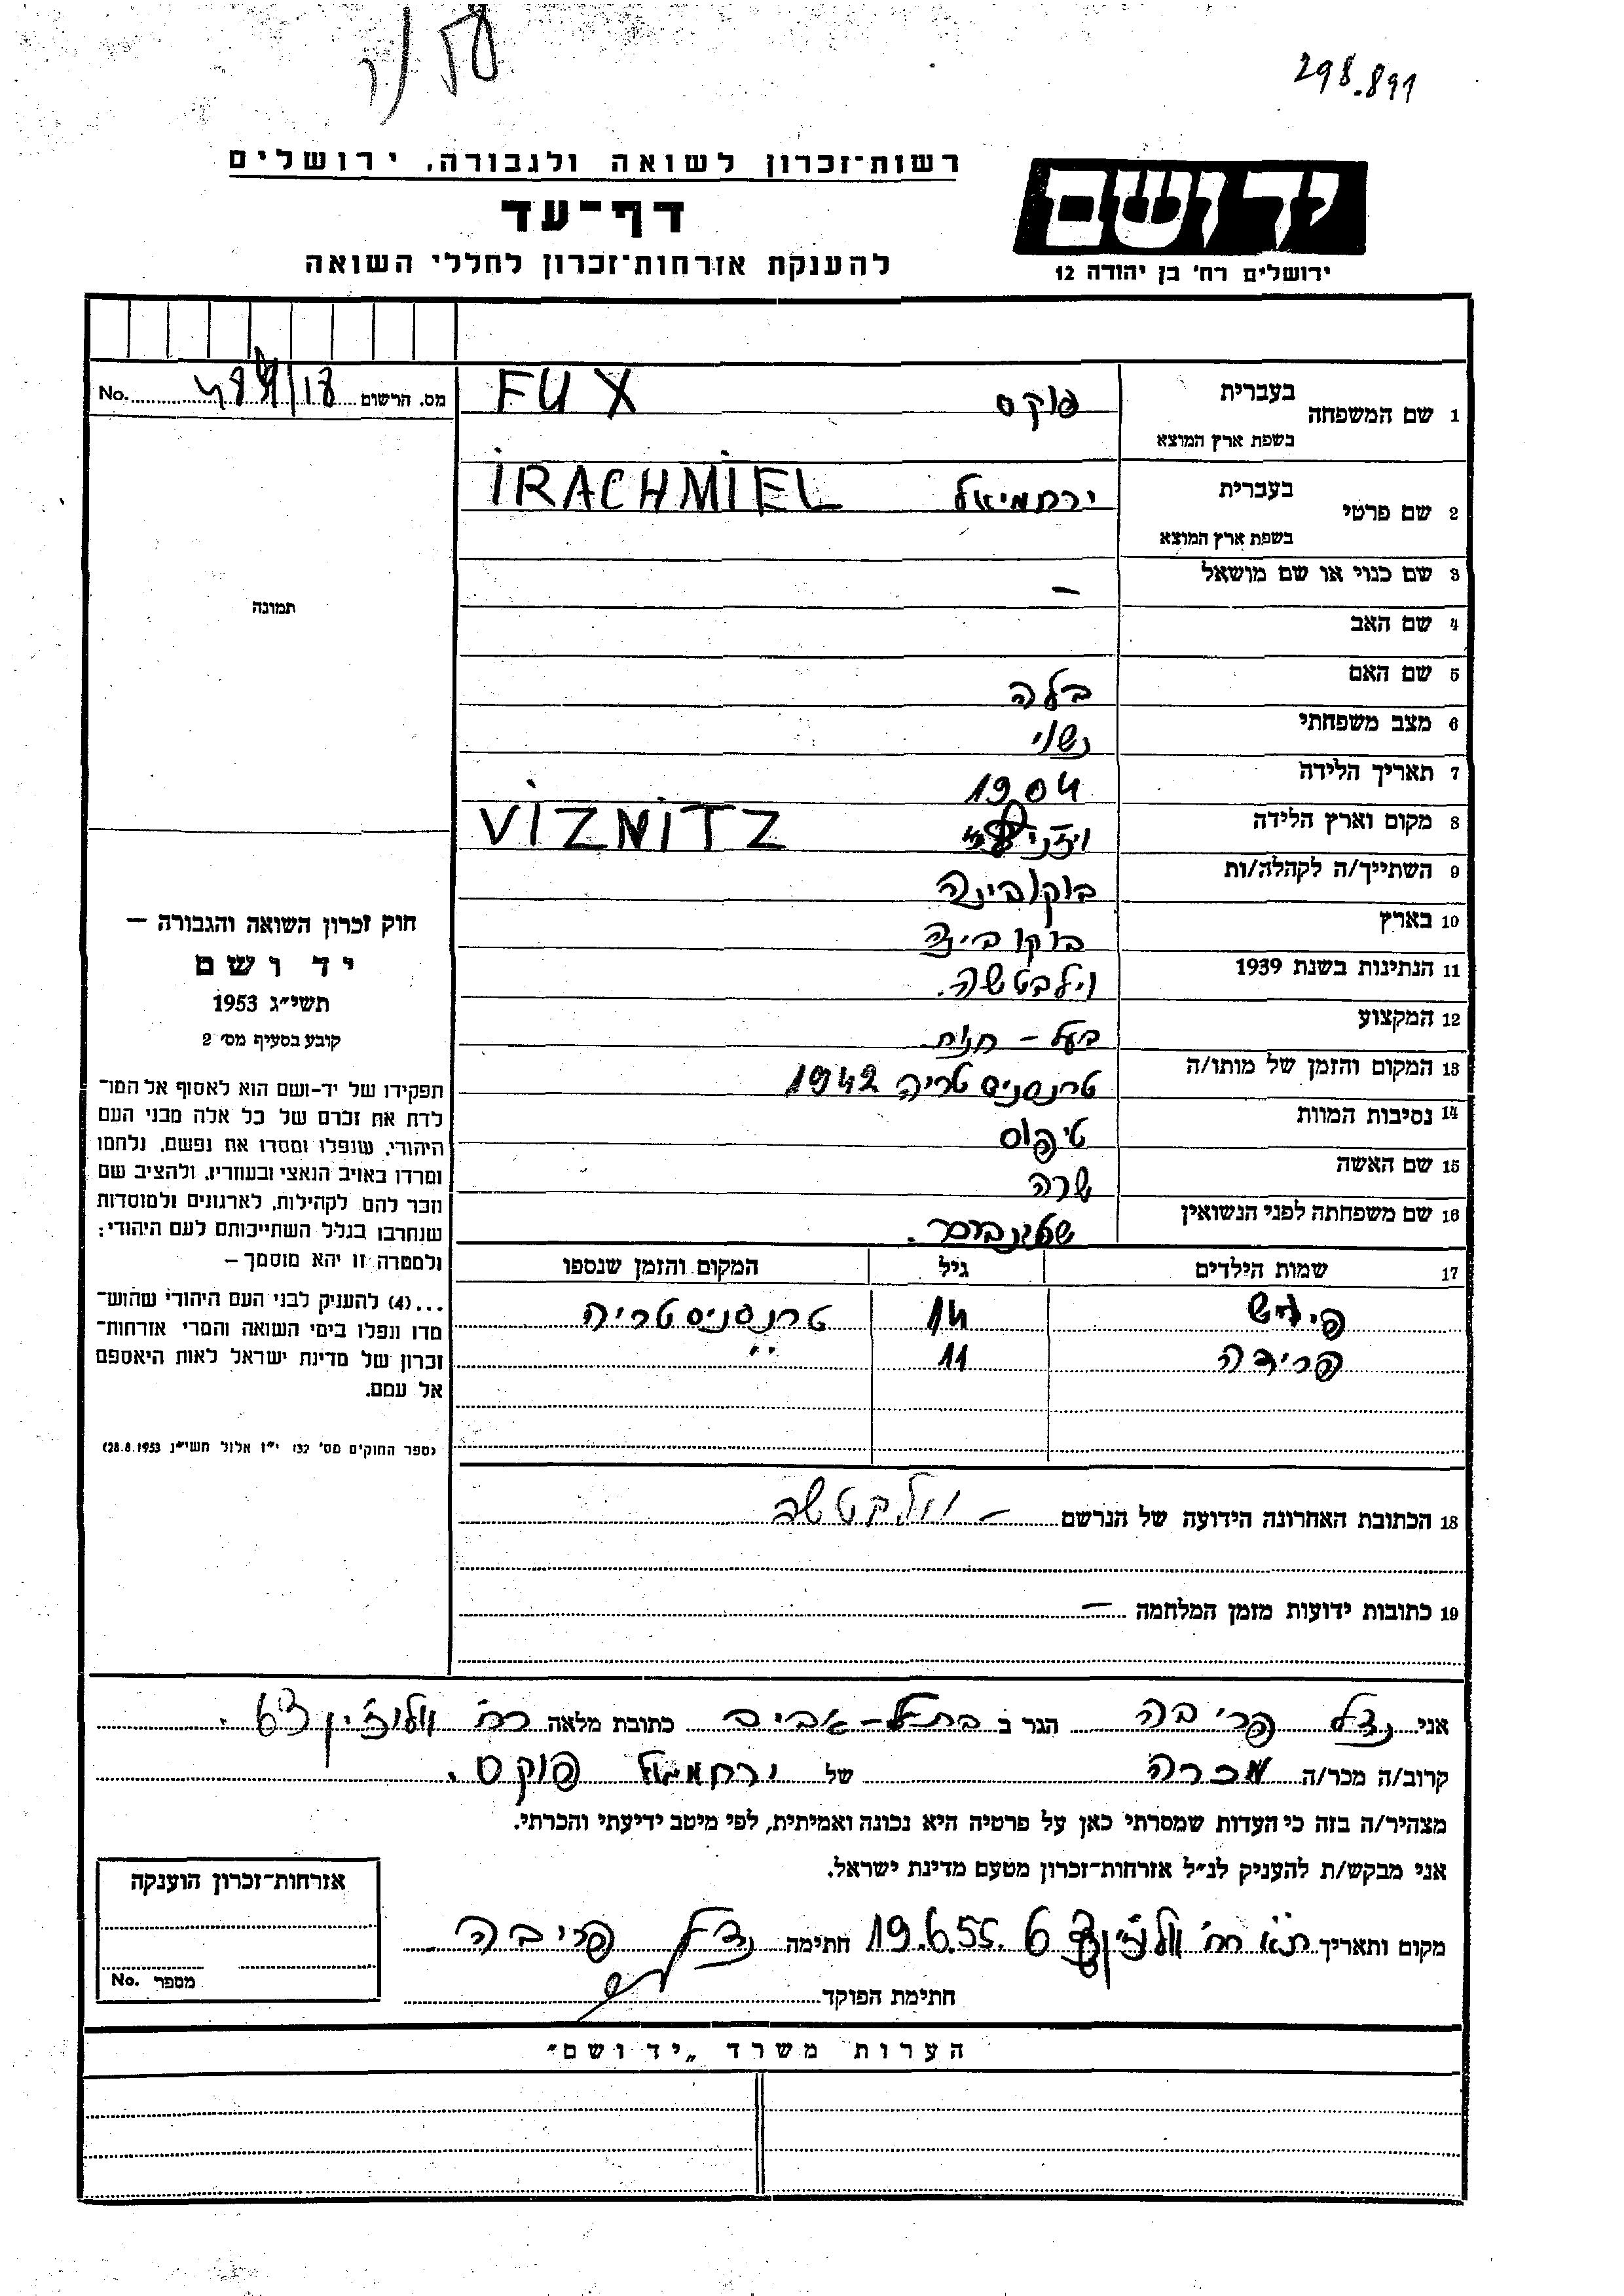 298.891
רשות־זכרון לשואה ולגבורה, ירושלים
דף־עד
להענקת אזרחות־זכרון לחללי השואה
יד ושם
ירושלים רח' בן יהודה 12
No. מס. הרשום
1 שם המשפחה בעברית פוקס FUX
בשפת ארץ המוצא
2 שם פרטי בעברית ירחמיאל IRACHMIEL
בשפת ארץ המוצא
3 שם כנוי או שם מושאל –
4 שם האב
5 שם האם בלה
6 מצב משפחתי נשוי
7 תאריך הלידה 1904
8 מקום וארץ הלידה VIZNITZ
9 השתייך/ה לקהלה/ות בוקובינה
10 בארץ בוקובינה
11 הנתינות בשנת 1939
12 המקצוע בעל - חנות
13 המקום והזמן של מותו/ה טרנסניסטריה 1942
14 נסיבות המוות טיפוס
15 שם האשה שרה
16 שם משפחתה לפני הנשואין
17 שמות הילדים גיל המקום והזמן שנספו
14 טרנסניסטריה
פרידה 11 "
18 הכתובת האחרונה הידועה של הנרשם –
19 כתובות ידועות מזמן המלחמה –
תמונה
חוק זכרון השואה והגבורה –
יד ושם
תשי״ג 1953
קובע בסעיף מס' 2
תפקידו של יד-ושם הוא לאסוף אל המו־
לדת את זכרם של כל אלה מבני העם
היהודי, שנפלו ומסרו את נפשם, נלחמו
ומרדו באויב הנאצי ובעוזריו, ולהציב שם
וזכר להם לקהילות, לארגונים ולמוסדות
שנחרבו בגלל השתייכותם לעם היהודי;
ולמטרה זו יהא מוסמך –
...(4) להעניק לבני העם היהודי שהוש־
מדו ונפלו בימי השואה והמרי אזרחות־
זכרון של מדינת ישראל לאות היאספם
אל עמם.
(ספר החוקים מס' 132 י״ז אלול תשי״ג 28.8.1953)
אני הגר ב בתל-אביב כתובת מלאה רח'
קרוב/ה מכר/ה מכרה של ירחמיאל פוקס.
מצהיר/ה בזה כי העדות שמסרתי כאן על פרטיה היא נכונה ואמיתית, לפי מיטב ידיעתי והכרתי.
אני מבקש/ת להעניק לנ״ל אזרחות־זכרון מטעם מדינת ישראל.
מקום ותאריך ת"א רח' 6 19.6.55 חתימה
חתימת הפוקד
אזרחות־זכרון הוענקה
מספר No.
הערות משרד „יד ושם״